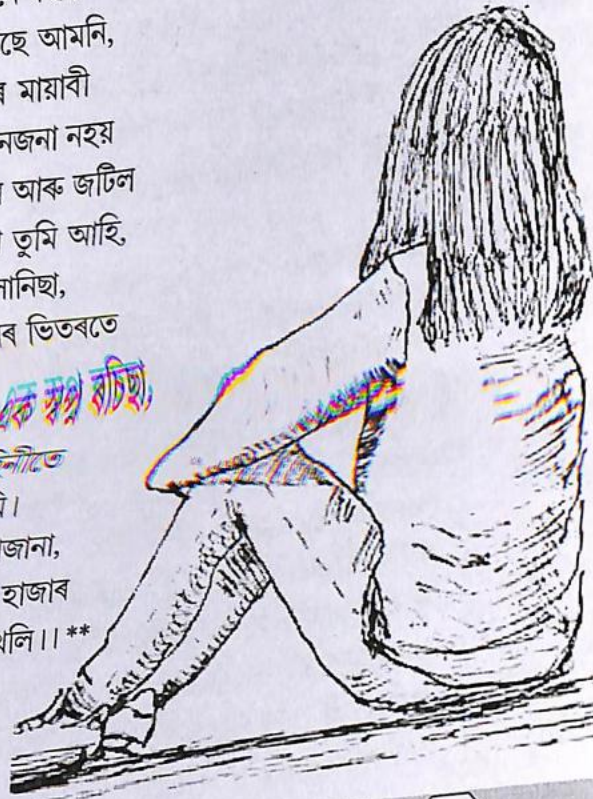 ছে আমনি,
ৰ মায়াবী
নজনা নহয়
আৰু জটিল
তুমি আহি,
ানিছা,
ৰ ভিতৰতে
এক স্বপ্ন ৰচিছা,
নীতে
ি।
জানা,
হাজাৰ
লি।। **